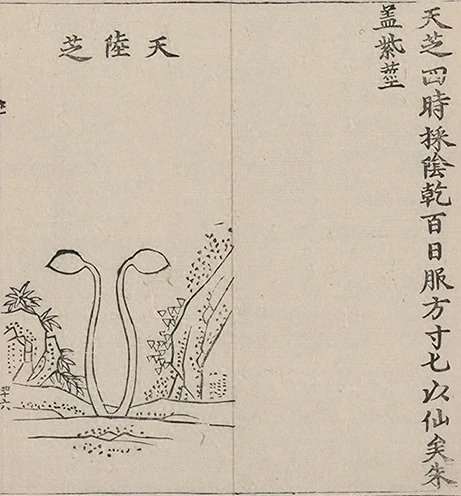 天芝四時採陰乾百日服方寸七以仙矣朱
盖紫莖
天陸芝
四十六